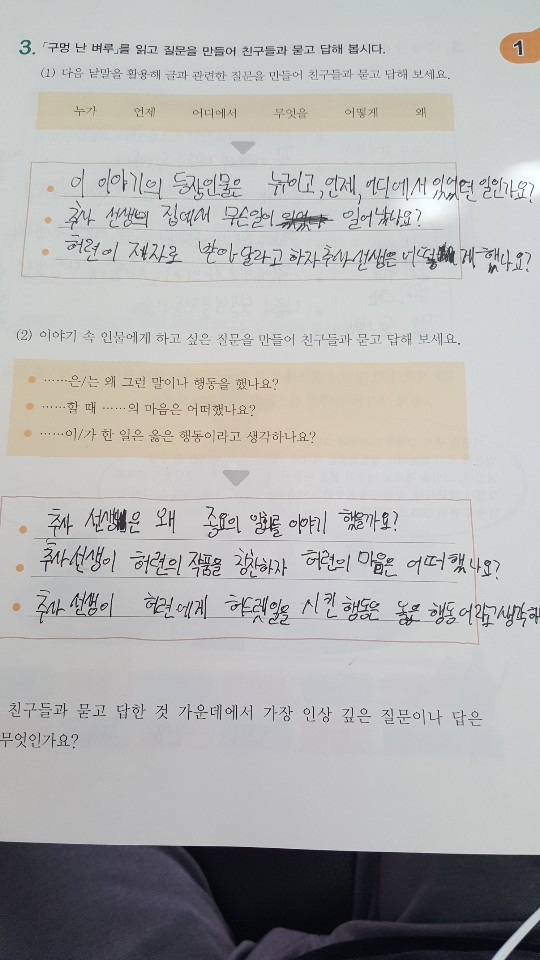 3. 「구멍 난 벼루」를 읽고 질문을 만들어 친구들과 묻고 답해 봅시다.
1
(1) 다음 낱말을 활용해 글과 관련한 질문을 만들어 친구들과 묻고 답해 보세요.
누가 언제 어디에서 무엇을 어떻게 왜
이 이야기의 등장인물은 누구이고, 언제, 어디에서 있었던 일인가요?
추사 선생의 집에서 무슨일이 일어났나요?
허련이 제자로 받아 달라고 하자 추사 선생은 어떻게 했나요?
(2) 이야기 속 인물에게 하고 싶은 질문을 만들어 친구들과 묻고 답해 보세요.
……은/는 왜 그런 말이나 행동을 했나요?
……할 때 ……의 마음은 어떠했나요?
……이/가 한 일은 옳은 행동이라고 생각하나요?
추사 선생은 왜 종요의 일화를 이야기 했을까요?
추사 선생이 허련의 작품을 칭찬하자 허련의 마음은 어떠했나요?
추사 선생이 허련에게 허드렛일을 시킨 행동은 옳은 행동이라고 생각하
친구들과 묻고 답한 것 가운데에서 가장 인상 깊은 질문이나 답은
무엇인가요?